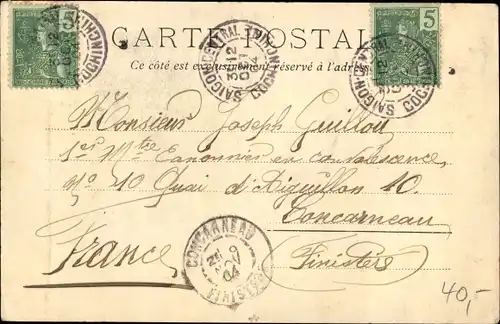 CARTE POSTALE
Ce côté est exclusivement réservé à l'adresse
5
5
SAIGON-CENTRAL
COCHINCHINE
SAIGON-CENTRAL
COCHINCHINE
Monsieur Joseph Guillou
1er Mtre Canonnier en convalescence,
No 10 Quai d'Aiguillon 10.
Concarneau
(Finistère)
France
CONCARNEAU
FINISTÈRE
9
NOV
04
40,-